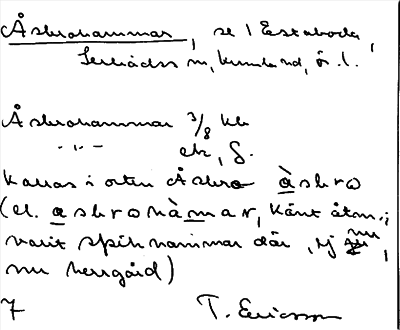 Åsbrohammar, se 1 Estabodа,
sn, Kumland, ö. l.
Åsbrohammar 3/8 kb
-"-
Kallas i orten Åsbro àsbro
(el. asbrohàmar, Känt åtm.;
varit spikhammar där, ej nu,
nu herrgård)
7 T. Ericsson